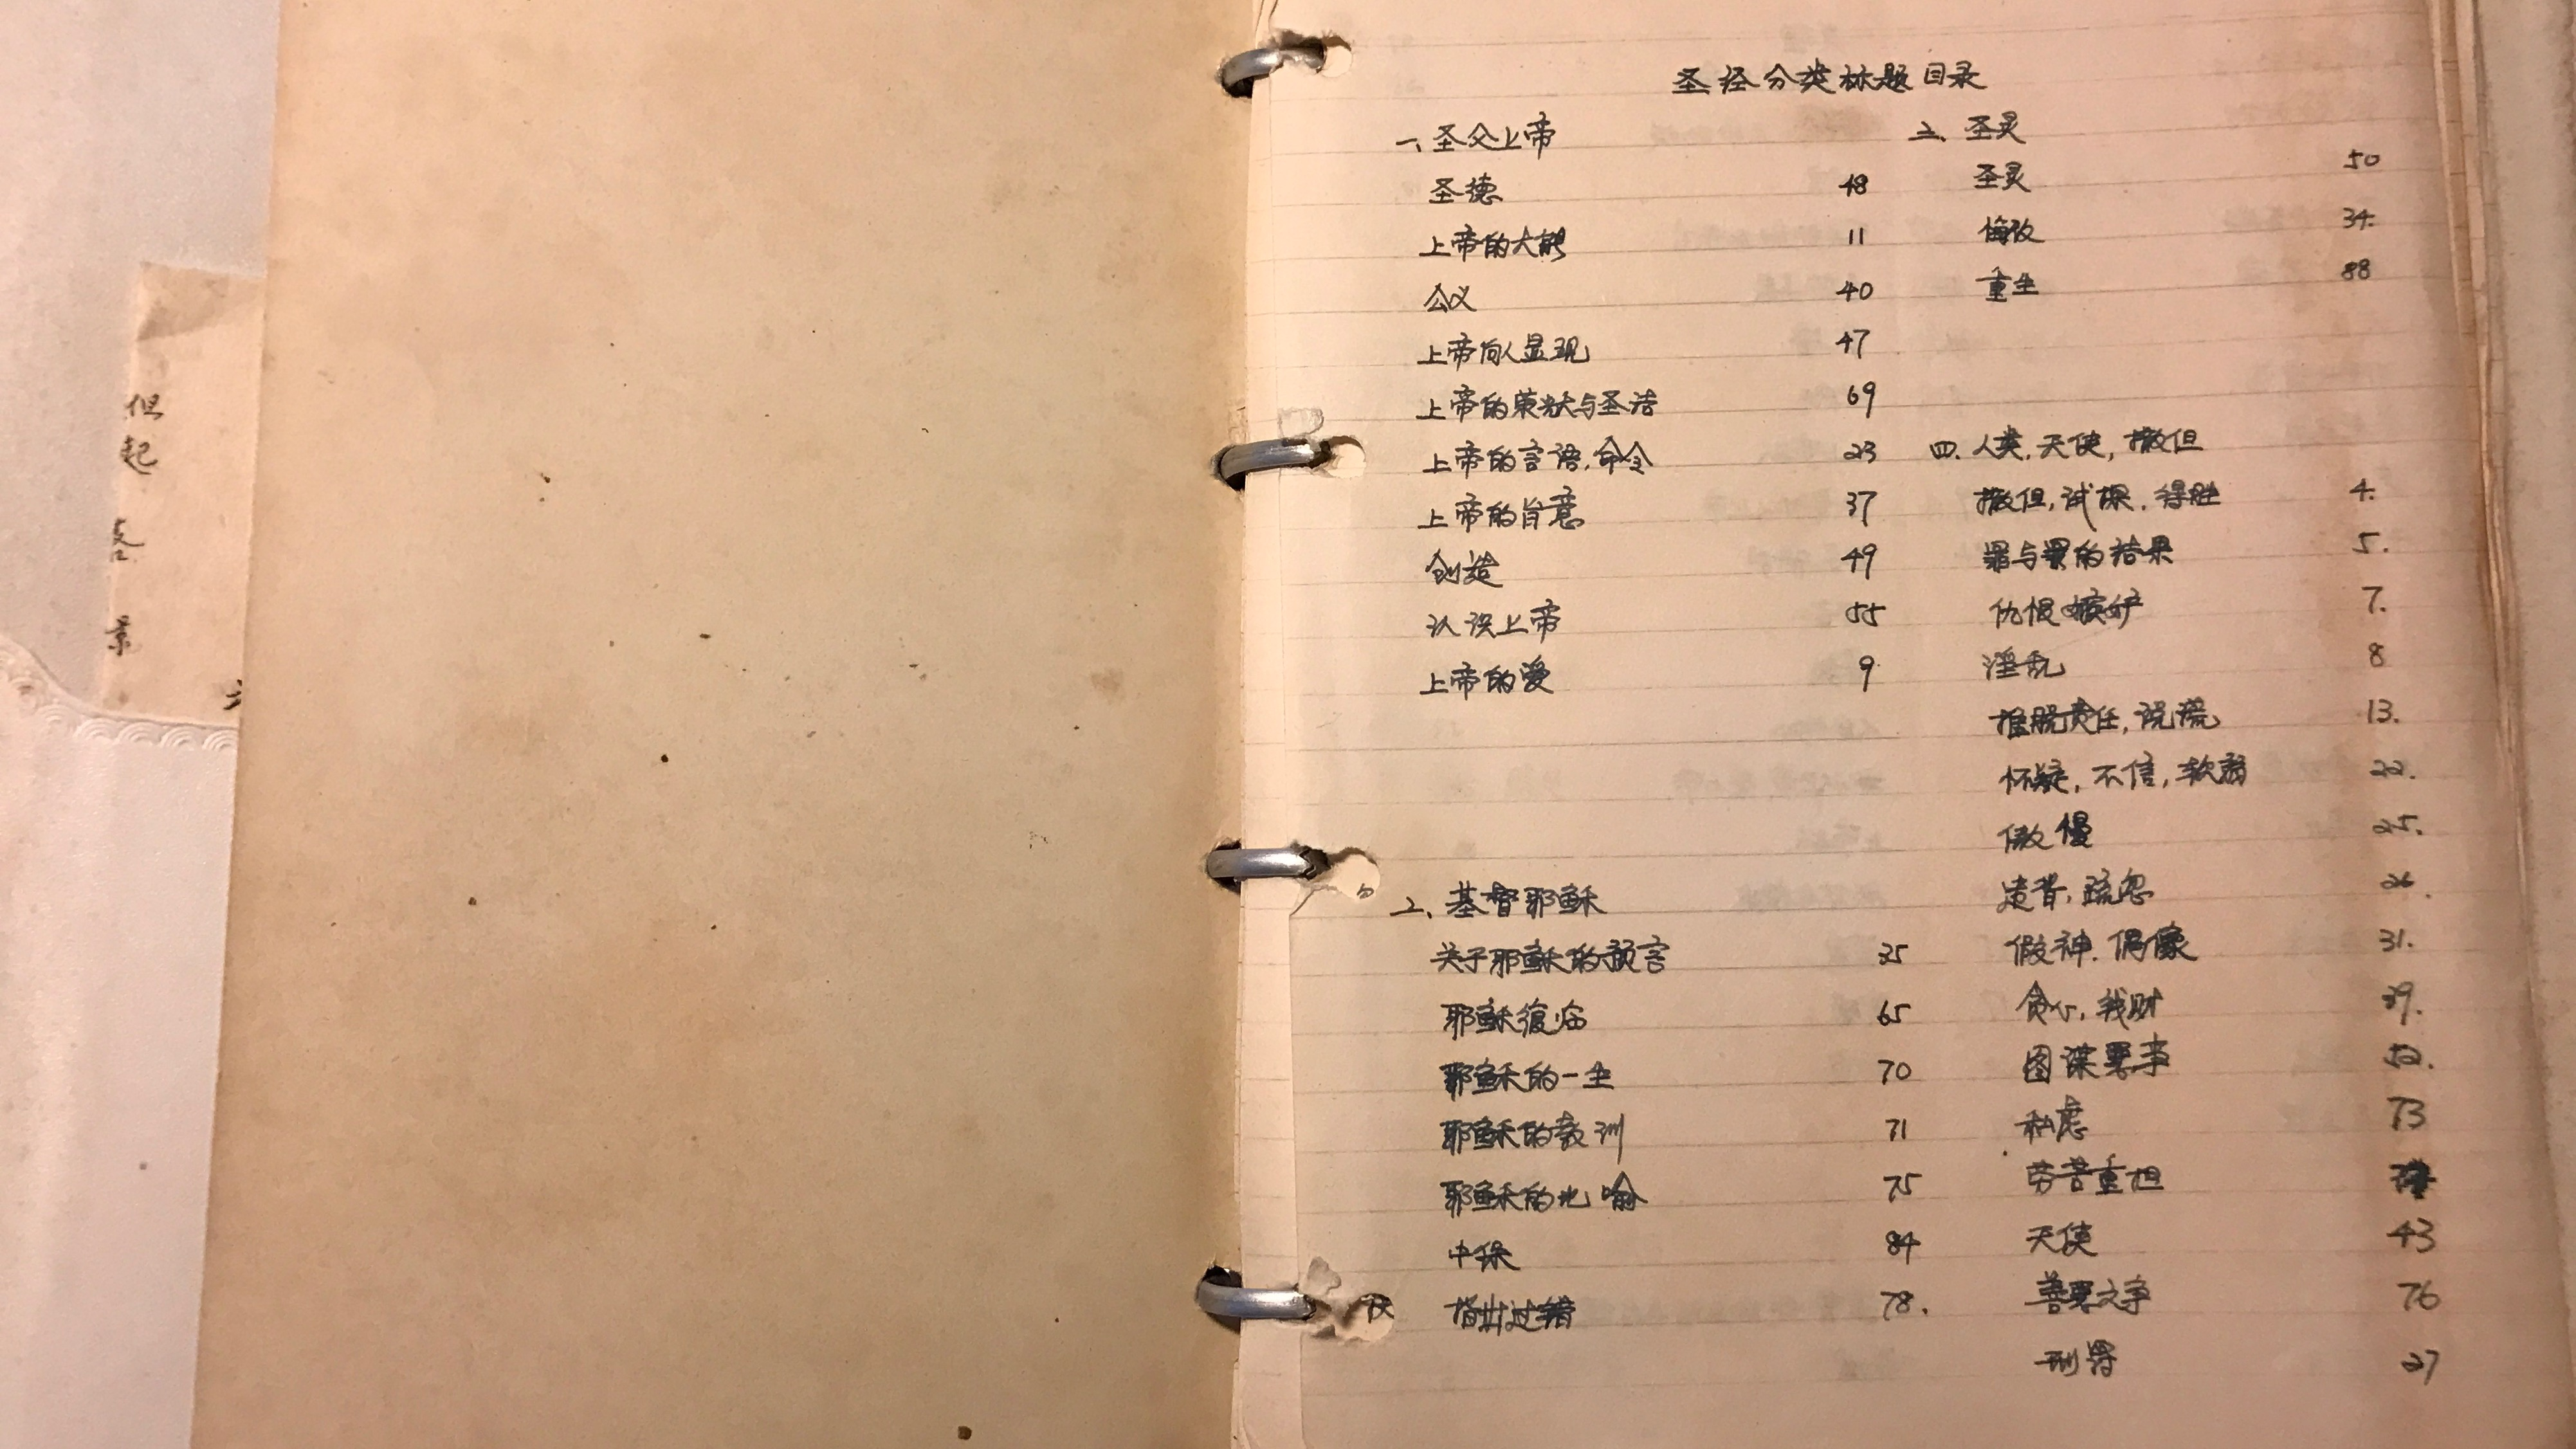 但
起
景
圣经分类标题目录
一、圣父上帝
圣德 48
上帝的大能 11
公义 40
上帝向人显现 47
上帝的荣光与圣洁 69
上帝的言语,命令 23
上帝的旨意 37
创造 49
认识上帝 55
上帝的爱 9
二、基督耶稣
关于耶稣的预言 35
耶稣复临 65
耶稣的一生 70
耶稣的教训 71
耶稣的比喻 75
中保 84
指出过错 78.
三、圣灵
圣灵 50
悔改 34.
重生 88
四.人类,天使,撒但
撒但,试探,得胜 4.
罪与罪的结果 5.
仇恨嫉妒 7.
淫乱 8
推脱责任,说谎 13.
怀疑,不信,软弱 22.
傲慢 25.
违背,疏忽 26.
假神.偶像 31.
贪心,钱财 39.
图谋恶事 52.
私虑 73
劳苦重担
天使 43
善恶之争 76
刑罚 27